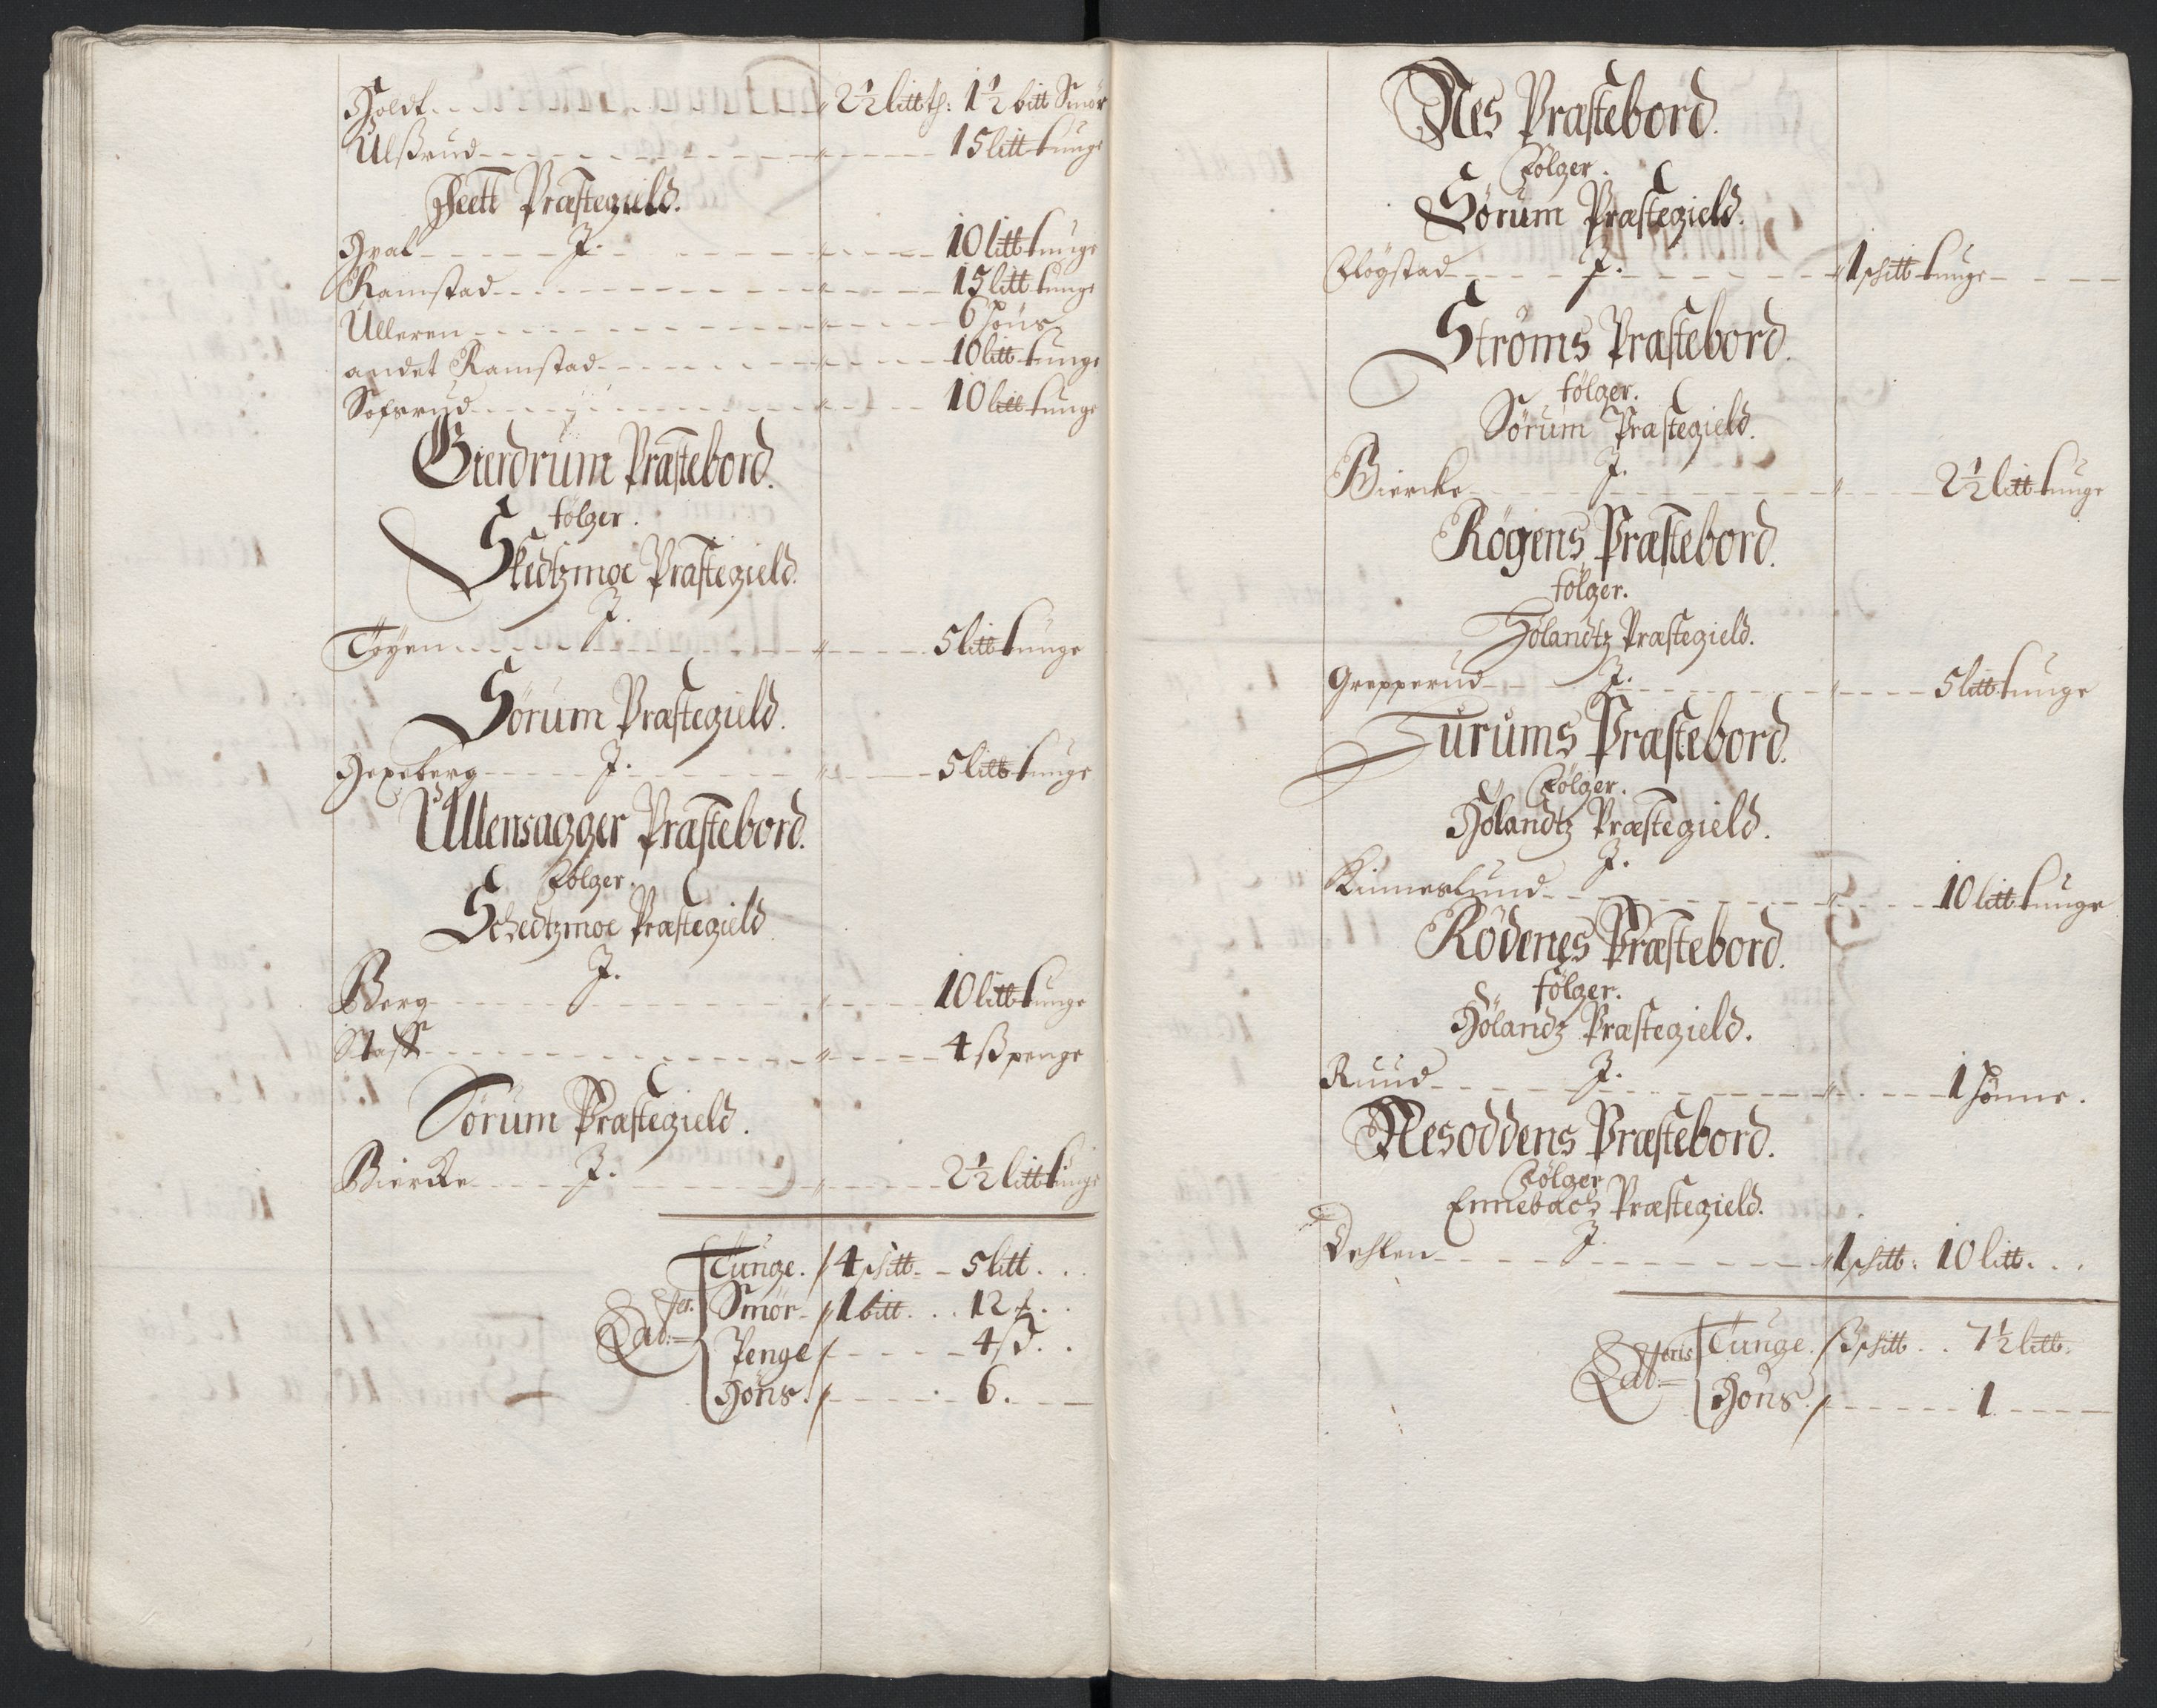 Holdt 2½ litt th: 1½ bitt Smør
Ulsrud 15 litt tunge
Feett Præstegield.
J.
Hval 10 litt tunge
Ramstad 15 litt tunge
Ulleren 6 Høns
andet Ramstad 10 litt tunge
10 litt tunge
Gierdrum Præstebord.
følger.
Skedtzmoe Præstegield.
J.
Tøyen 5 litt tunge
Sørum Præstegield.
J.
Hexeberg 5 litt tunge
Ullensagger Præstebord.
følger.
Schedtzmoe Præstegield
J.
Berg 10 litt tunge
Staff 4 ß penge
Sørum Præstegield.
Bierke J. 2½ litt tunge
Tunge. 4 skitt 5 litt.
Smør 1 bitt. 12
Lat:
Penge 4 ß.
Høns. 6.
Nes Præstebord.
følger.
Sørum Præstegield.
Fløgstad J. 1 skitt tunge
Strøms Præstebord.
følger.
Sørum Præstegield.
J.
Biercke 2½ litt tunge
Røgens Præstebord.
følger.
Hølandtz Præstegield.
Grepperud J. 5 litt tunge
Turums Præstebord.
følger.
Hølandtz Præstegield.
J.
Kinneslund 10 litt tunge
Rødenes Præstebord.
følger.
Hølandz Præstegield.
Ruud J. 1 Hønne.
Nesoddens Præstebord.
følger
Ennebachz Præstegield.
J.
Dehlen 1 skitt: 10 litt.
Lateris Tunge. 3 skitt 7½ litt.
Høns. 1